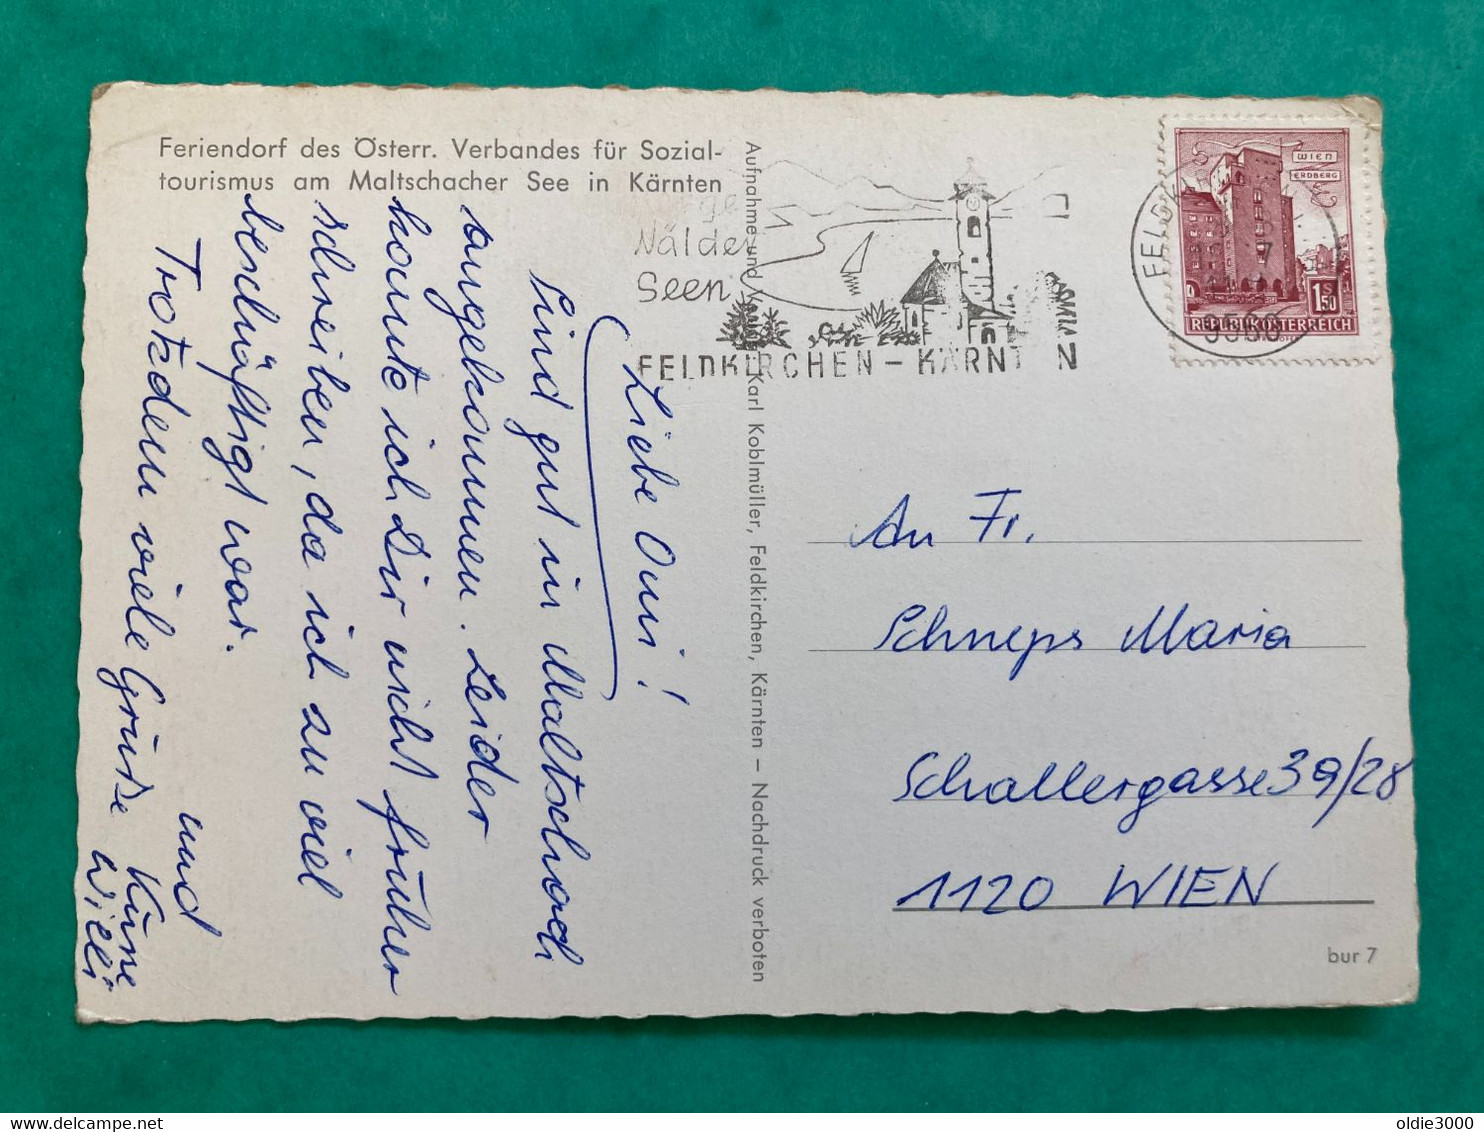 Feriendorf des Österr. Verbandes für Sozial-
tourismus am Maltschacher See in Kärnten
Liebe Omi!
Sind gut in Maltschach
angekommen. Leider
konnte ich Dir nicht früher
schreiben, da ich zu viel
beschäftigt war.
Trotzdem viele Grüße und
Küsse
Willi
Aufnahme und Verlag: Karl Koblmüller, Feldkirchen, Kärnten – Nachdruck verboten
Wälder
Seen
FELDKIRCHEN – KÄRNTEN
9560
WIEN
ERDBERG
S
1.50
REPUBLIK ÖSTERREICH
An Fr.
Schneps Maria
Schallergasse 39/28
1120 WIEN
bur 7
oldie3000